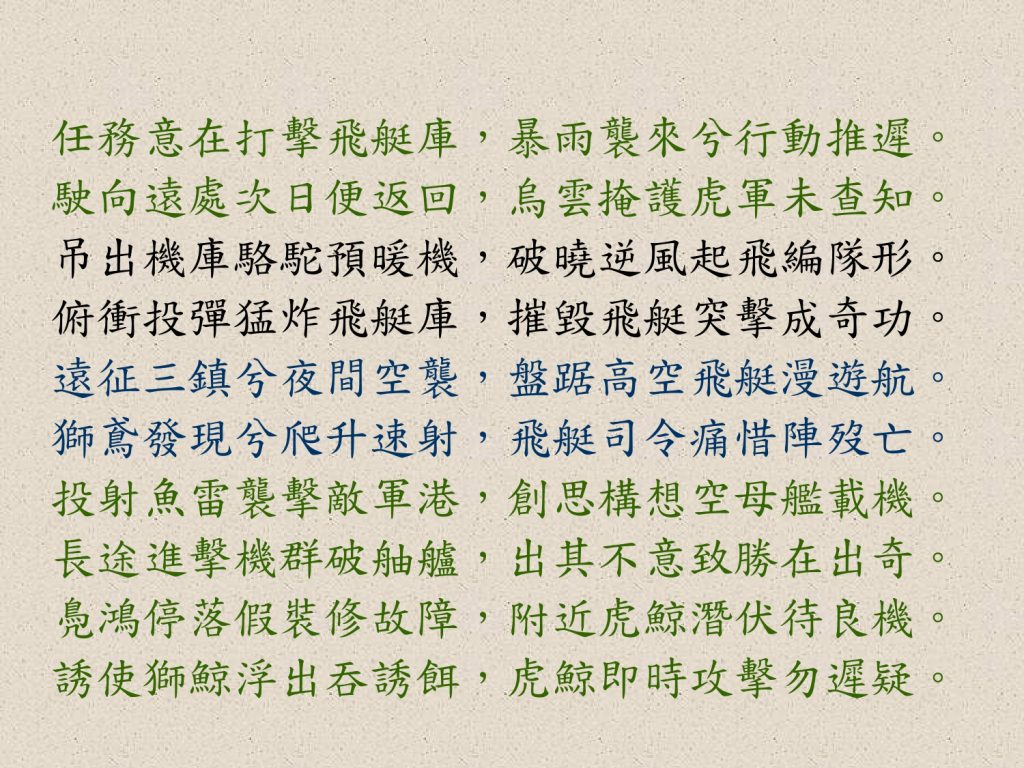 任務意在打擊飛艇庫，暴雨襲來兮行動推遲。
駛向遠處次日便返回，烏雲掩護虎軍未查知。
吊出機庫駱駝預暖機，破曉逆風起飛編隊形。
俯衝投彈猛炸飛艇庫，摧毀飛艇突擊成奇功。
遠征三鎮兮夜間空襲，盤踞高空飛艇漫遊航。
獅鳶發現兮爬升速射，飛艇司令痛惜陣歿亡。
投射魚雷襲擊敵軍港，創思構想空母艦載機。
長途進擊機群破舳艫，出其不意致勝在出奇。
鳧鴻停落假裝修故障，附近虎鯨潛伏待良機。
誘使獅鯨浮出吞誘餌，虎鯨即時攻擊勿遲疑。